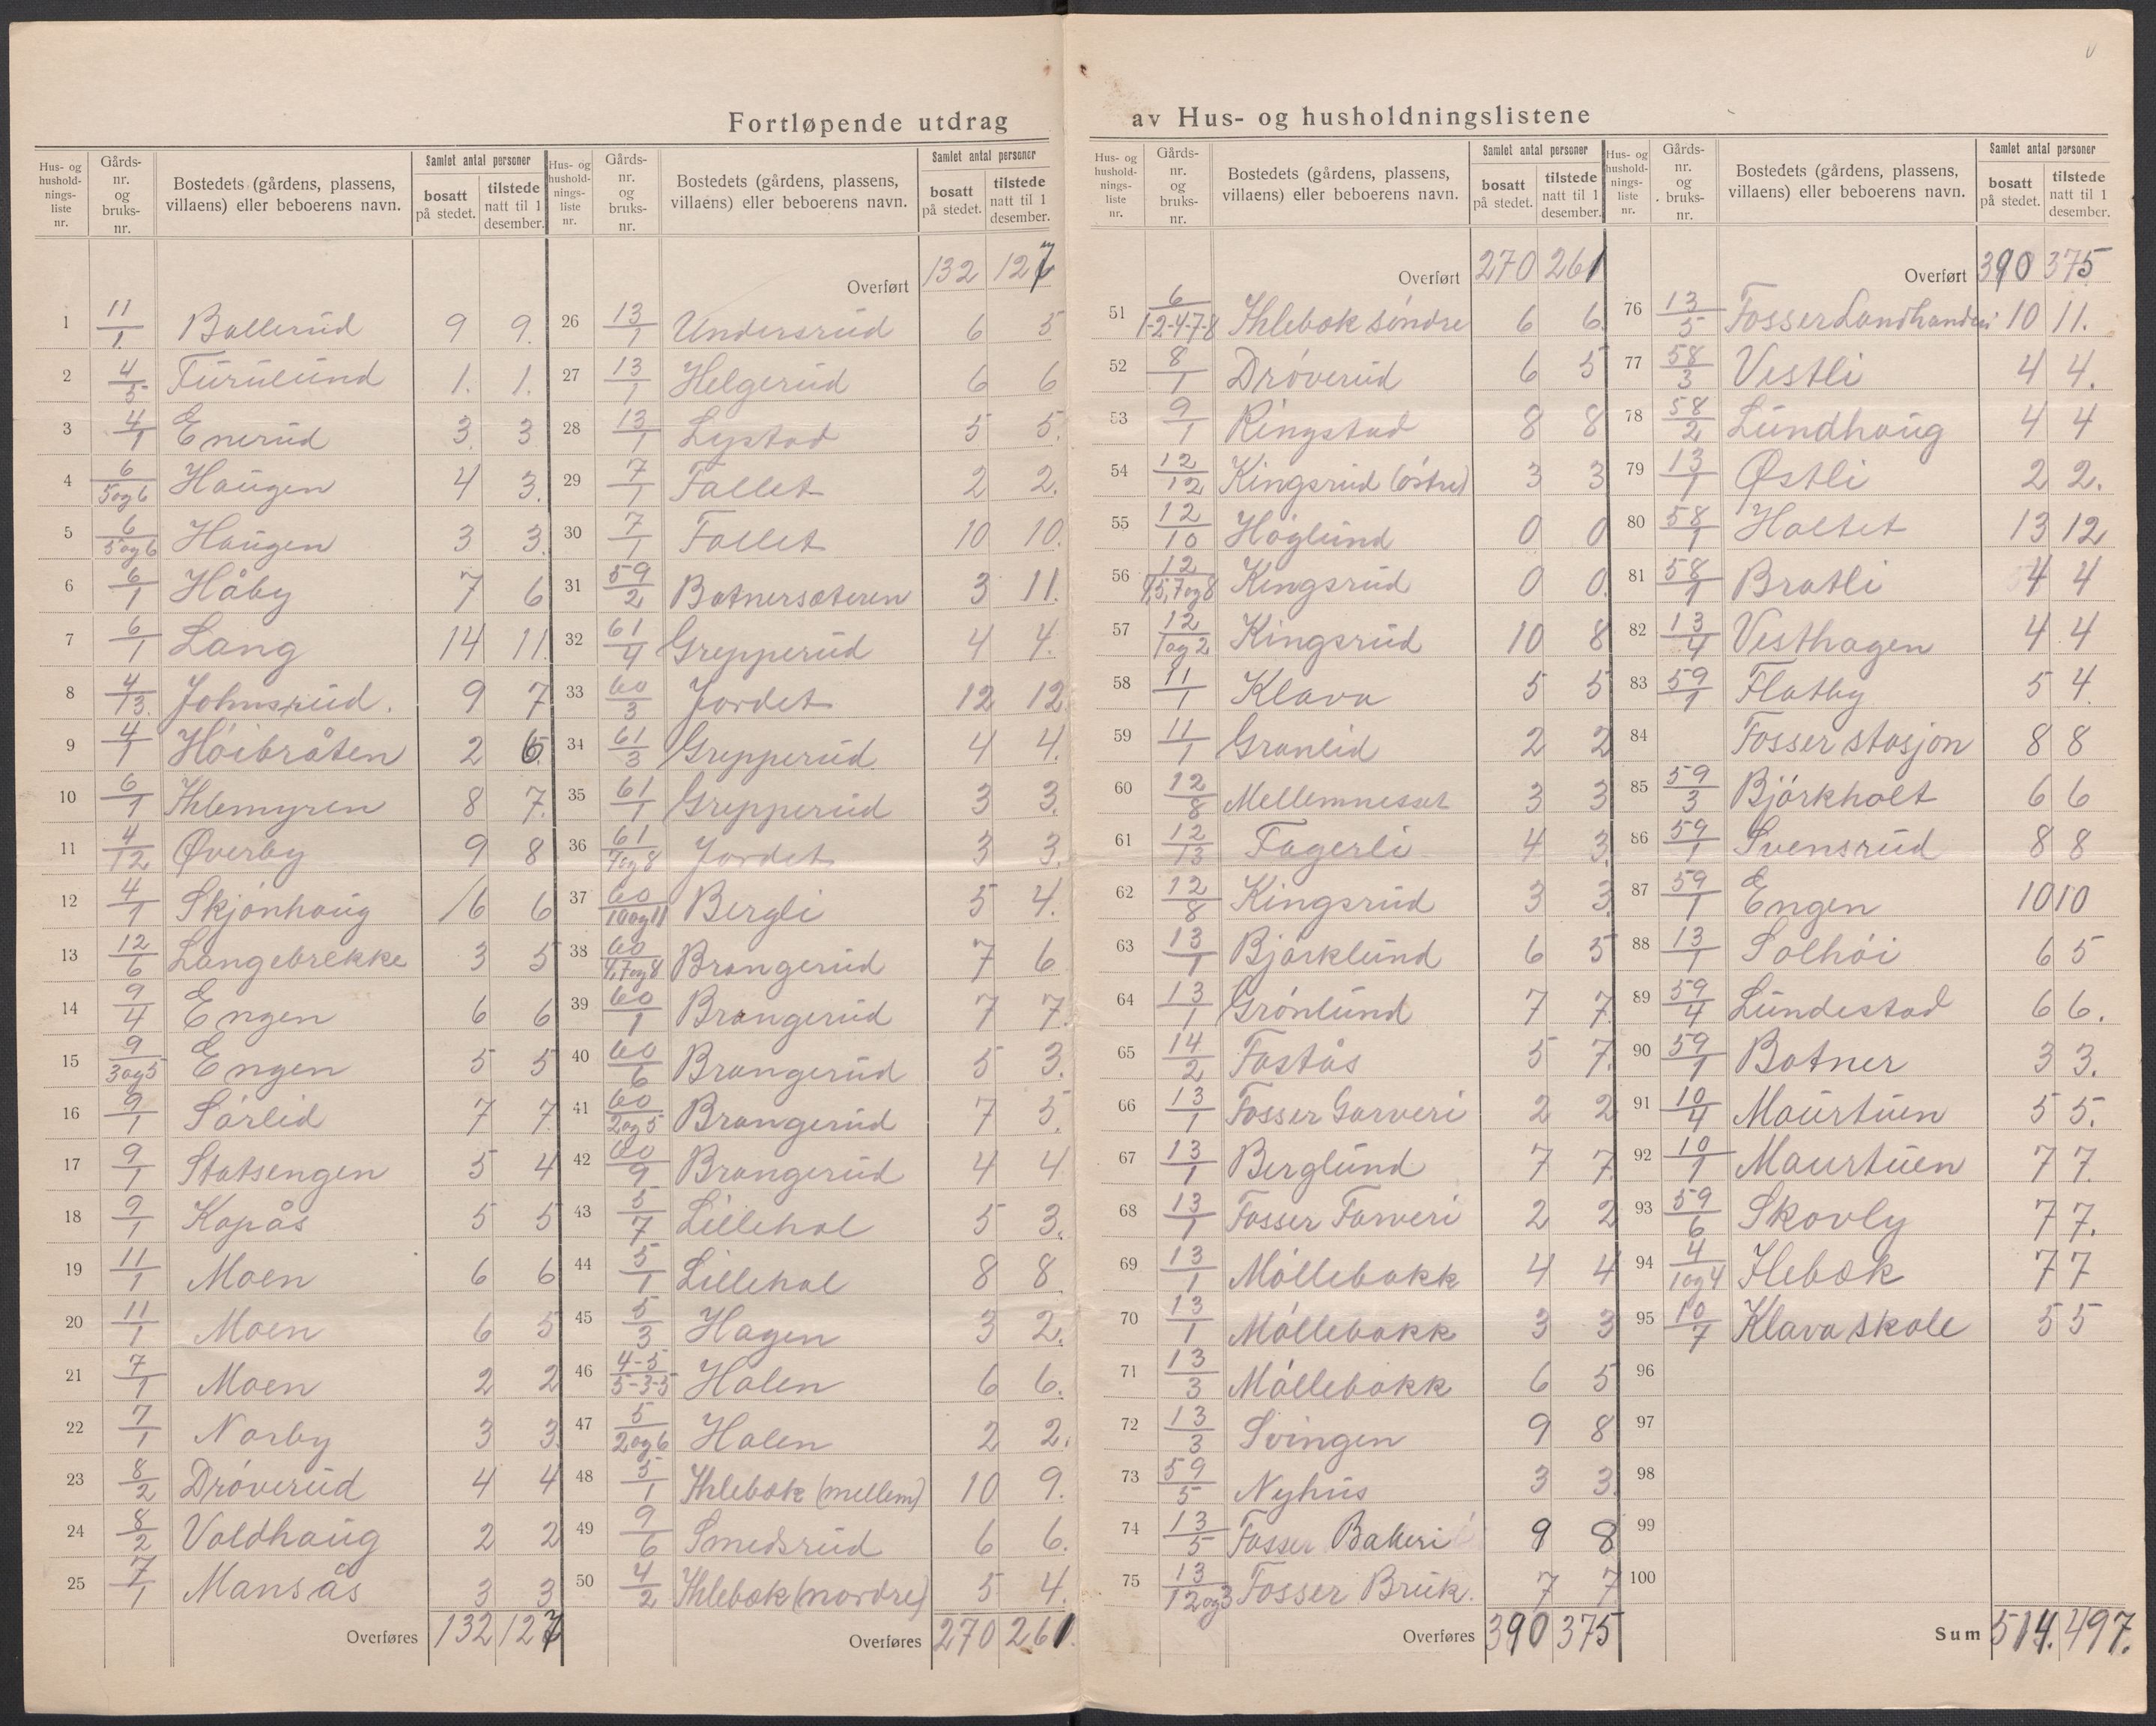 Fortløpende utdrag av Hus- og husholdningslistene
Hus- og husholdnings-liste nr. | Gårds-nr. og bruks-nr. | Bostedets (gårdens, plassens, villaens) eller beboerens navn. | Samlet antal personer | bosatt på stedet. | tilstede natt til 1 desember.
1 11/1 Ballerud 9 9.
2 4/5 Furulund 1. 1.
3 4/1 Enerud 3. 3
4 6/5og6 Haugen 4 3.
5 6/5og6 Haugen 3 3.
6 6/1 Håby 7 6
7 6/1 Lang 14 11.
8 4/13. Johnsrud. 9 7
9 4/1 Höibråten 2 6
10 6/1 Ihlemyren 8 7.
11 4/12 Øverby 9 8
12 4/1 Skjönhaug 6 6
13 12/6 Langebrekke 3 5
14 9/4 Engen 6 6
15 9/3og5 Engen 5 5
16 9/1 Sörlid 7 7.
17 9/1 Statsengen 5 4
18 9/1 Kopås 5 5
19 11/1 Moen 6 6
20 11/1 Moen 6 5
21 7/1 Moen 2 2
22 7/1 Norby 3 3.
23 8/2 Dröverud 4 4
24 8/2 Voldhaug 2 2
25 7/1 Mansås 3 3
Overføres 132 127
Hus- og husholdnings-liste nr. | Gårds-nr. og bruks-nr. | Bostedets (gårdens, plassens, villaens) eller beboerens navn. | Samlet antal personer | bosatt på stedet. | tilstede natt til 1 desember.
Overført 132 127
26 13/1 Undersrud 6 5
27 13/1 Helgerud 6 6
28 13/1 Lystad 5 5.
29 7/1 Fallet 2 2.
30 7/1 Fallet 10 10.
31 59/2 Botnersæteren 3 11.
32 61/4 Grepperud 4 4.
33 60/3 Jordet 12 12
34 61/3 Grepperud 4 4.
35 61/1 Grepperud 3 3.
36 61/7og8 Jordet 3 3.
37 60/10og11 Bergli 5 4.
38 60/4,7og8 Brangerud 7 6
39 60/1 Brangerud 7 7.
40 60/6 Brangerud 5 3.
41 60/2og5 Brangerud 7 5.
42 60/9 Brangerud 4 4
43 5/7 Lillehol 5 3.
44 5/1 Lillehol 8 8
45 5/3 Hagen 3 2.
46 4-5/5-3-5 Holen 6 6.
47 5/2og6 Holen 2 2.
48 5/1 Ihlebæk (mellem) 10 9.
49 9/6 Smedsrud 6 6.
50 4/2 Ihlebæk (nordre) 5 4.
Overføres 270 261.
Hus- og husholdnings-liste nr. | Gårds-nr. og bruks-nr. | Bostedets (gårdens, plassens, villaens) eller beboerens navn. | Samlet antal personer | bosatt på stedet. | tilstede natt til 1 desember.
Overført 270 261
51 6/1-2-4-7-8 Ihlebæk söndre 6 6.
52 8/1 Dröverud 6 5
53 9/1 Ringstad 8 8
54 12/12 Kingsrud (östre) 3 3
55 12/10 Höglund 0 0
56 12/4,5,7og8 Kingsrud 0 0.
57 12/1og2 Kingsrud 10 8
58 11/1 Klava 5 5
59 11/1 Granlid 2 2
60 12/8 Mellemnesset 3 3
61 12/13 Fagerli 4 3.
62 12/8 Kingsrud 3 3.
63 13/1 Björklund 6 5
64 13/1 Grönlund 7 7.
65 14/2 Fostås 5 7.
66 13/1 Fosser Garveri 2 2
67 13/1 Berglund 7 7.
68 13/1 Fosser Farveri 2 2
69 13/1 Möllebakk 4 4
70 13/1 Möllebakk 3 3
71 13/3 Möllebakk 6 5
72 13/3 Svingen 9 8
73 59/5 Nyhus 3 3.
74 13/5 Fosser Bakeri 9 8
75 13/12og3 Fosser Bruk. 7 7
Overføres 390 375
Hus- og husholdnings-liste nr. | Gårds-nr. og bruks-nr. | Bostedets (gårdens, plassens, villaens) eller beboerens navn. | Samlet antal personer | bosatt på stedet. | tilstede natt til 1 desember.
Overført 390 375
76 13/5 Fosser Landhandleri 10 11.
77 58/3 Vestli 4 4.
78 58/2 Lundhaug 4 4
79 13/1 Østli 2 2.
80 58/1 Holtet 13 12
81 58/1 Bratli 4 4
82 13/4 Vesthagen 4 4
83 59/1 Flatby 5 4.
84 Fosser stasjon 8 8
85 59/3 Björkholt 6 6
86 59/1 Svensrud 8 8
87 59/1 Engen 10 10
88 13/1 Solhöi 6 5
89 59/4 Lundestad 6 6.
90 59/1 Botner 3 3.
91 10/4 Maurtuen 5 5.
92 10/1 Maurtuen 7 7.
93 59/6 Skovly 7 7.
94 4/1og4 Ilebæk 7 7
95 10/7 Klava skole 5 5
96
97
98
99
100
Sum 514. 497.